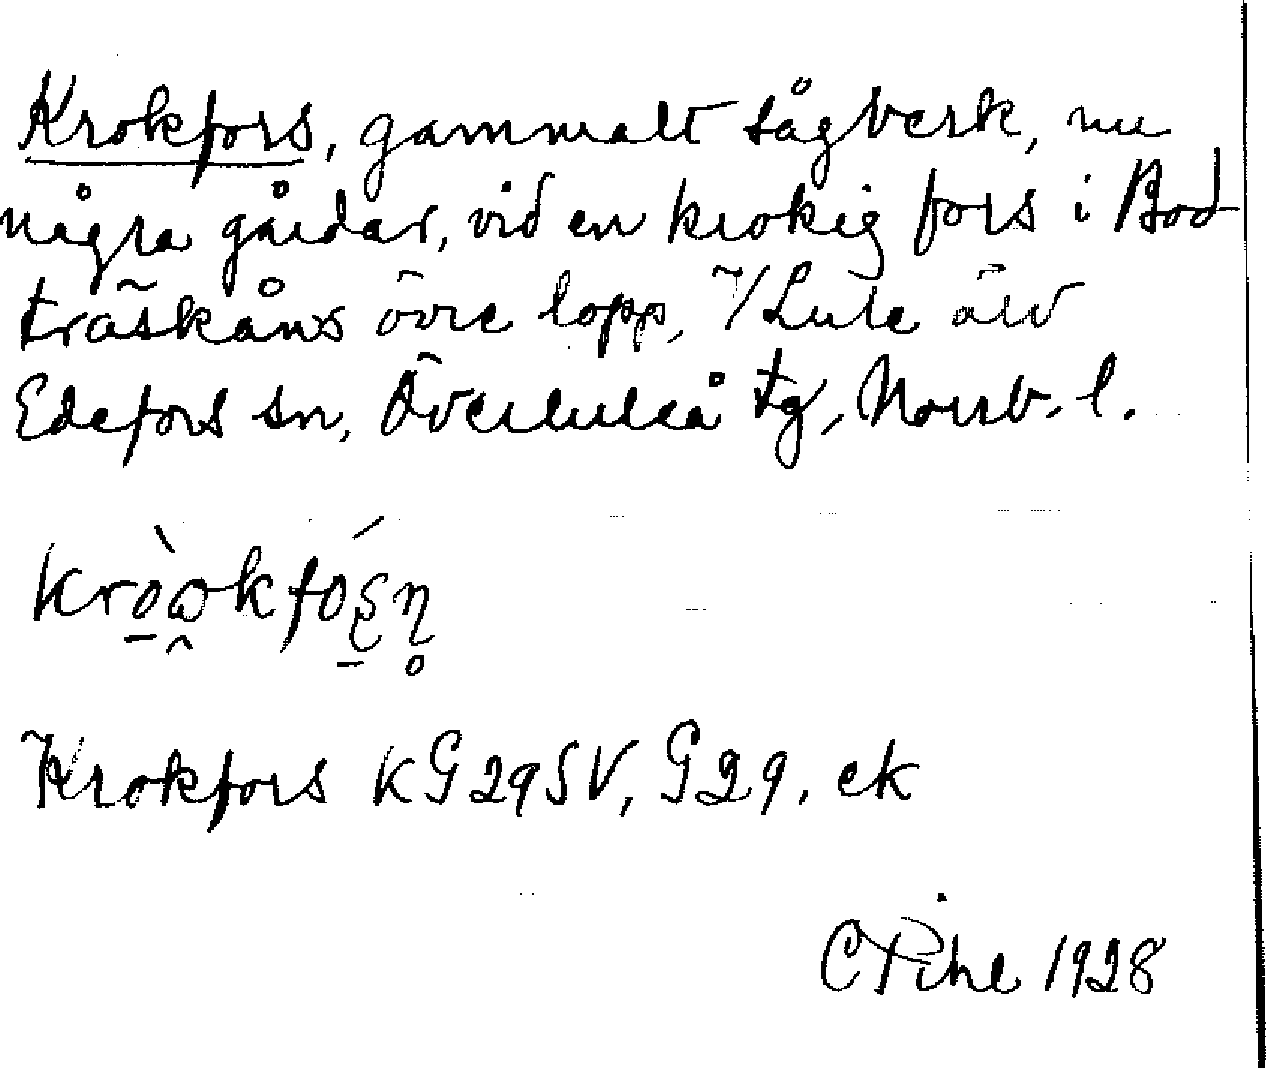 Krokfors, gammalt sågverk, nu
några gårdar, vid en krokig fors i Bod
träskåns övre lopp, T/Lule älv
Edefors sn, Överluleå tg, Norrb. l.
Krokfors KG29SV, G29. ek
C Pihl 1928